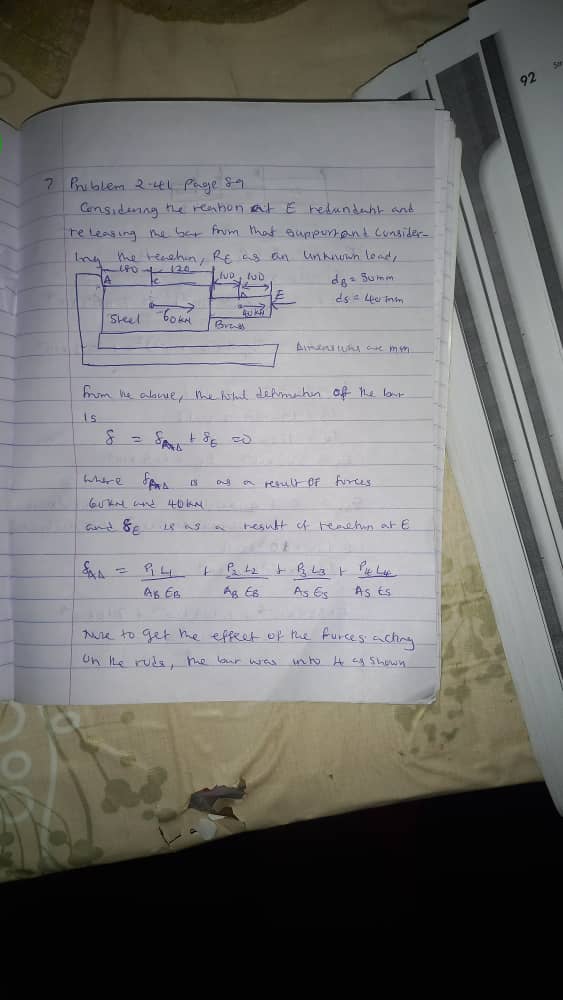 92
7 Problem 2.41 page 89
Considering the reaction at E redundant and
releasing the bar from that support and consider-
ing the reaction, RE as an unknown load,
180 120
100 100
A C D E
dB = 30mm
ds = 40mm
60KN
40KN
Steel
Brass
Dimensions are mm
From the above, the total deformation of the bar
is
δ = δAD + δE = 0
where δAD is as a result of forces
60KN and 40KN
and δE is as a result of reaction at E
δAD = P1 L1 / AB EB + P2 L2 / AB EB + P3 L3 / As Es + P4 L4 / As Es
Note to get the effect of the forces acting
on the rods, the bar was into 4 as shown